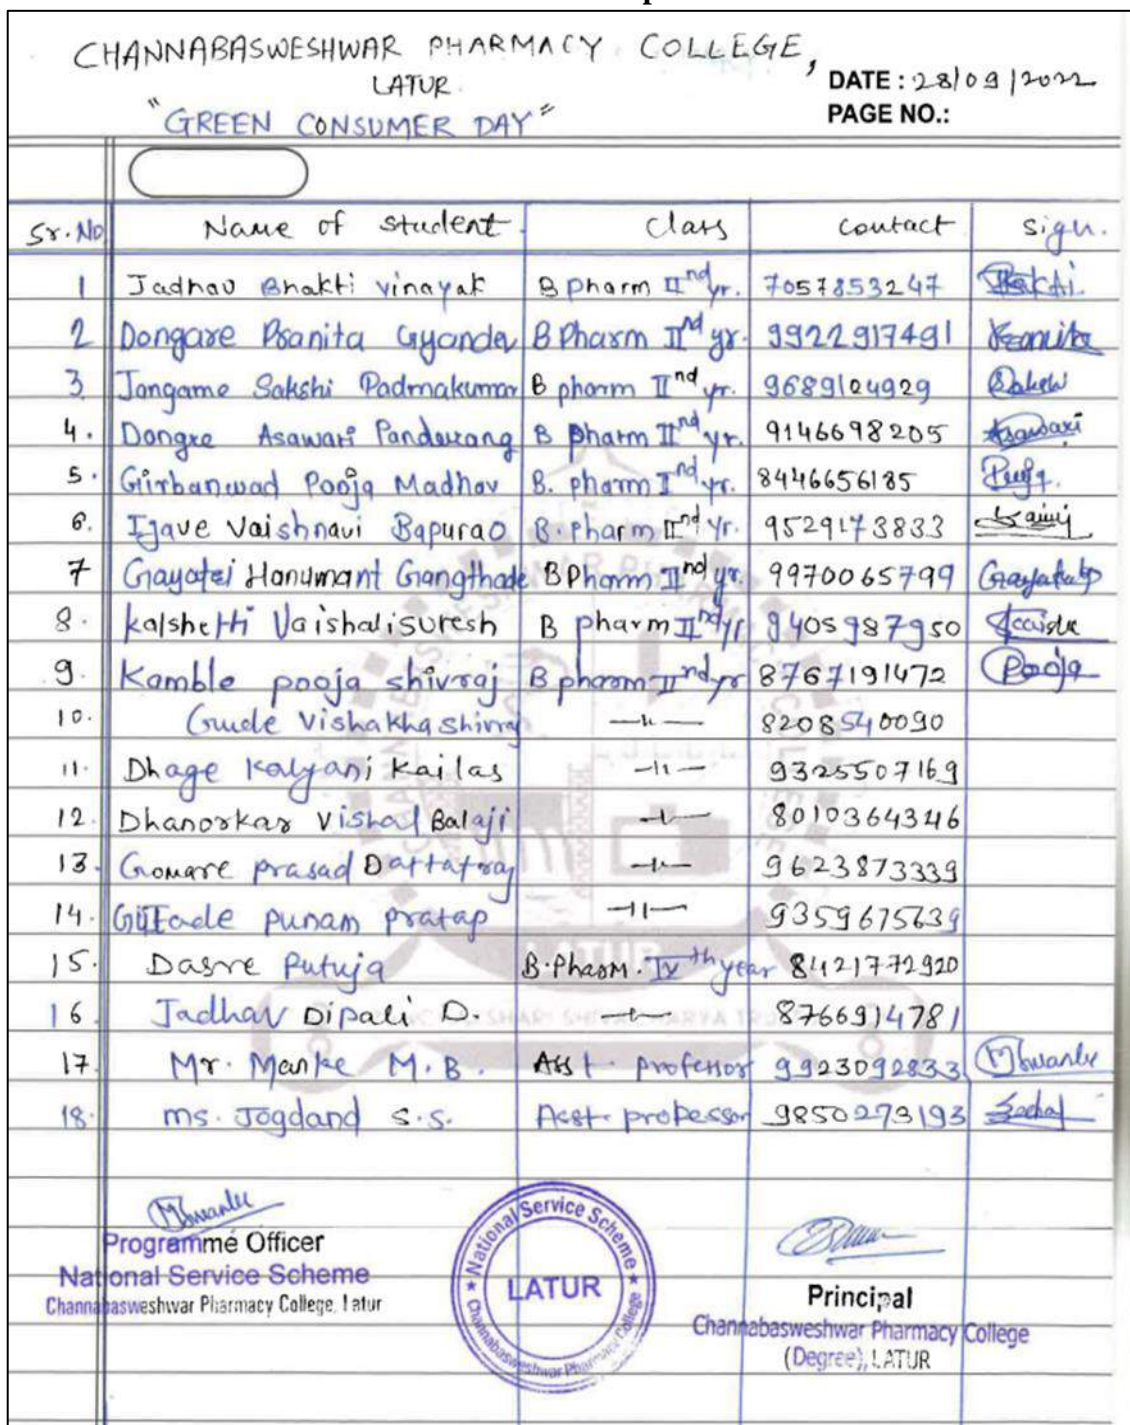 CHANNABASWESHWAR PHARMACY COLLEGE,
LATUR
DATE : 28/09/2022
"GREEN CONSUMER DAY"
PAGE NO.:
Sr. No Name of student Class contact sign.
1 Jadhav Bhakti vinayak B pharm IInd yr. 7057853247 Bhakti
2 Dongare Pranita Gyandev B Pharm IInd yr. 9922917491 Pranita
3. Jangame Sakshi Padmakumar B pharm IInd yr. 9689124929 Sakshi
4. Dongre Asawari Pandurang B Pharm IInd yr. 9146698205 Asawari
5. Girbanwad Pooja Madhav B. pharm IInd yr. 8446656185 Pooja
6. Ijave Vaishnavi Bapurao B. Pharm IInd yr. 9529173833
7 Gayatri Hanumant Gangthade B Pharm IInd yr. 9970065799
8. Kalshetti Vaishali Suresh B pharm IInd yr. 9405987950
9. Kamble pooja shivraj B pharm IInd yr 8767191472 Pooja
10. Gude Vishakha Shivraj —11— 8208540090
11. Dhage Kalyani Kailas —11— 9325507169
12. Dhanorkar Vishal Balaji —11— 8010364346
13. Gomare prasad Dattatray —11— 9623873339
14. Gutade punam pratap —11— 9359675639
15. Dasre Rutuja B.Pharm. IVth year 8421772920
16 Jadhav Dipali D. —11— 8766914781
17 Mr. Manke M.B. Asst. professor 9923092833
18. ms. Jogdand s.s. Asst. professor 9850273193
Programme Officer
National Service Scheme
Channabasweshwar Pharmacy College, Latur
National Service Scheme
LATUR
Channabasweshwar Pharmacy College
Principal
Channabasweshwar Pharmacy College
(Degree), LATUR